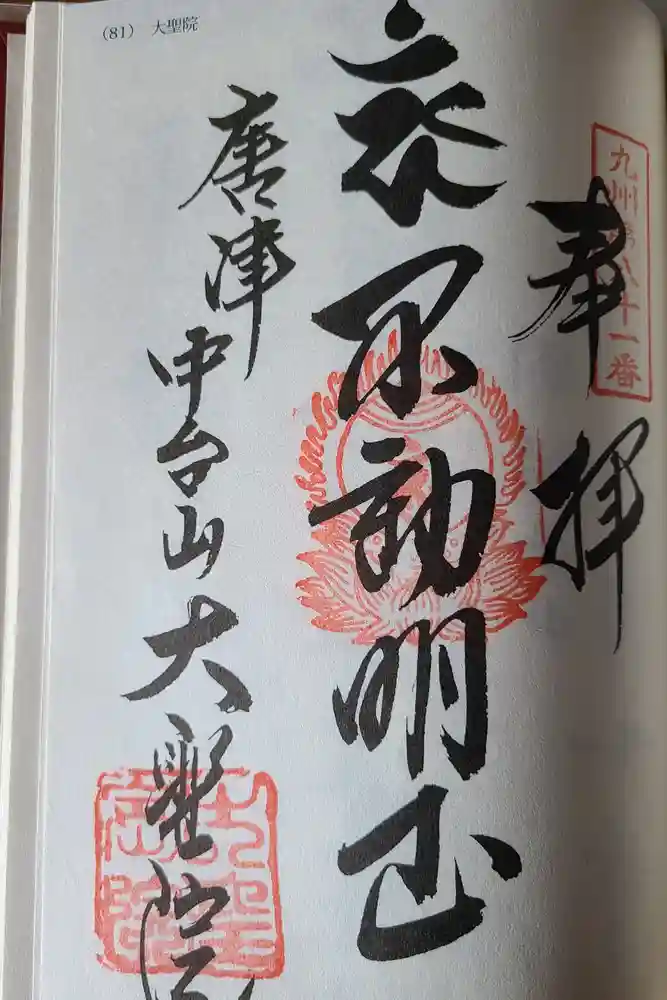 (81) 大聖院
九州第八十一番
奉拝
不動明王
唐津
中台山大聖院